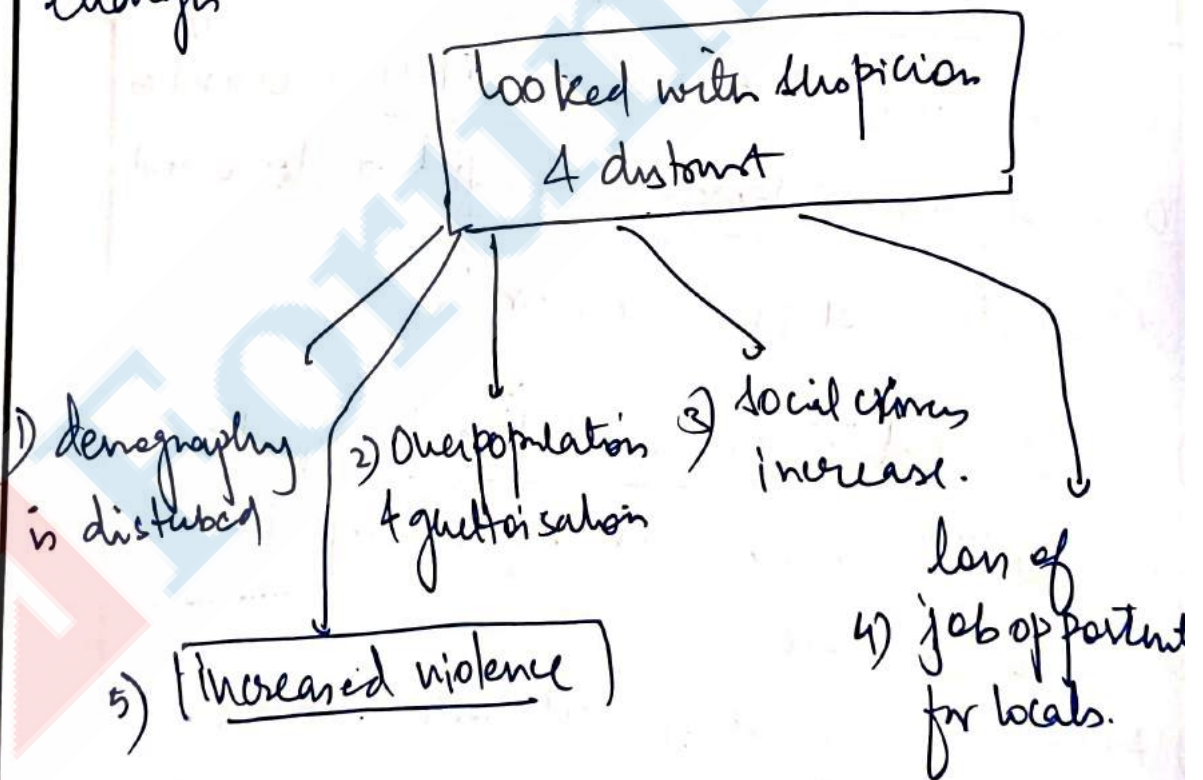 looked with suspicion
& distrust
1) demography
is disturbed
2) Overpopulation
& ghettoisation
3) social crimes
increase.
loss of
4) job opportunit
for locals.
5) increased violence
Forum